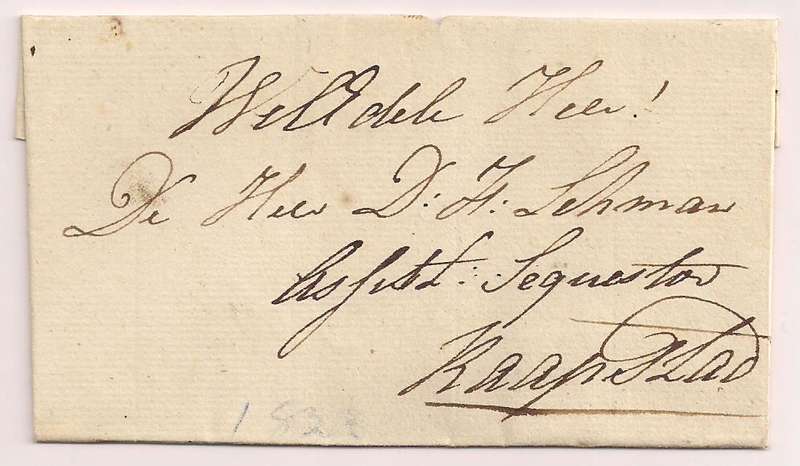 WelEdele Heer!
De Heer D: F: Lehman
Assist: Sequestor
KaapStad